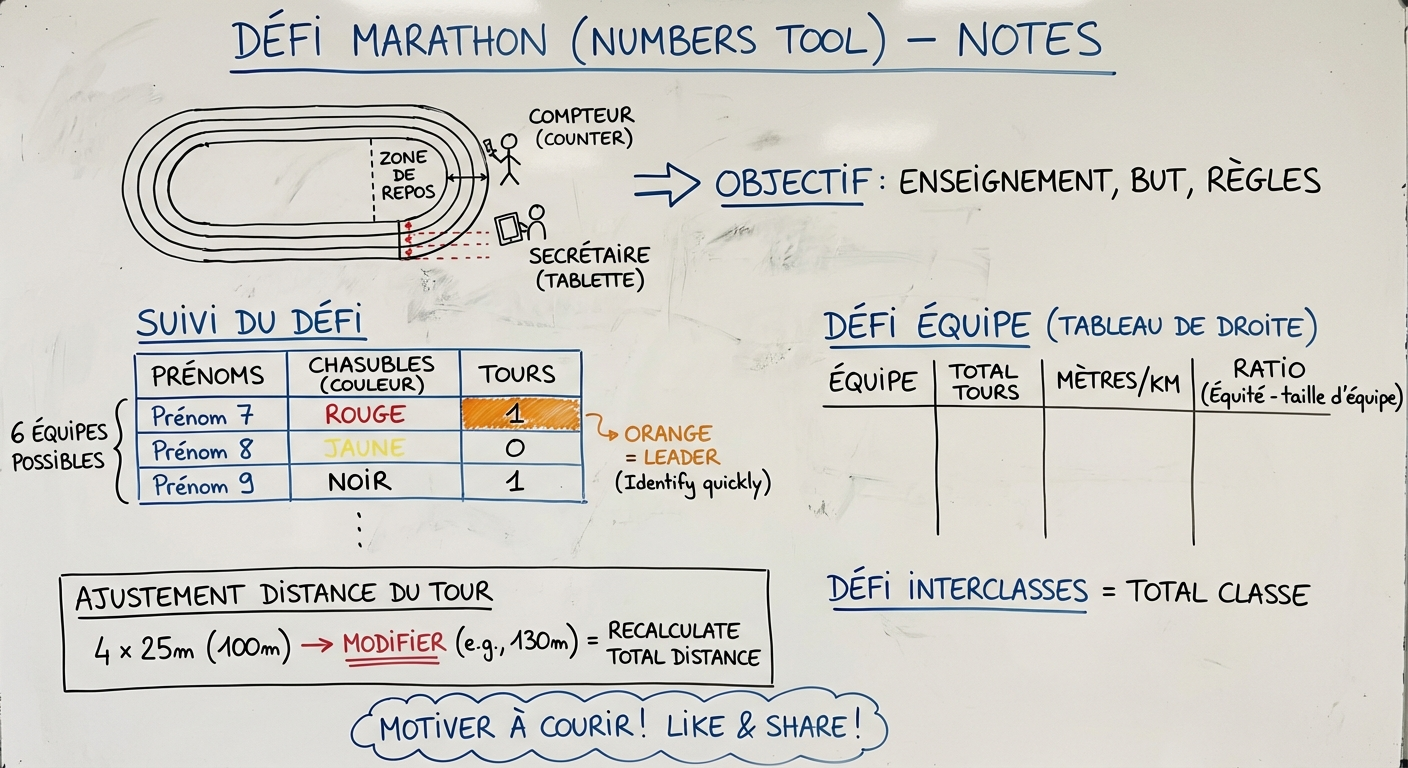 DÉFI MARATHON (NUMBERS TOOL) – NOTES
COMPTEUR
(COUNTER)
ZONE
DE
REPOS
SECRÉTAIRE
(TABLETTE)
OBJECTIF : ENSEIGNEMENT, BUT, RÈGLES
SUIVI DU DÉFI
PRÉNOMS CHASUBLES (COULEUR) TOURS
Prénom 7 ROUGE 1
Prénom 8 JAUNE 0
Prénom 9 NOIR 1
6 ÉQUIPES
POSSIBLES
ORANGE
= LEADER
(Identify quickly)
DÉFI ÉQUIPE (TABLEAU DE DROITE)
ÉQUIPE TOTAL TOURS MÈTRES/KM RATIO (Équité - taille d'équipe)
AJUSTEMENT DISTANCE DU TOUR
4 x 25m (100m) → MODIFIER (e.g., 130m) = RECALCULATE TOTAL DISTANCE
DÉFI INTERCLASSES = TOTAL CLASSE
MOTIVER À COURIR! LIKE & SHARE!